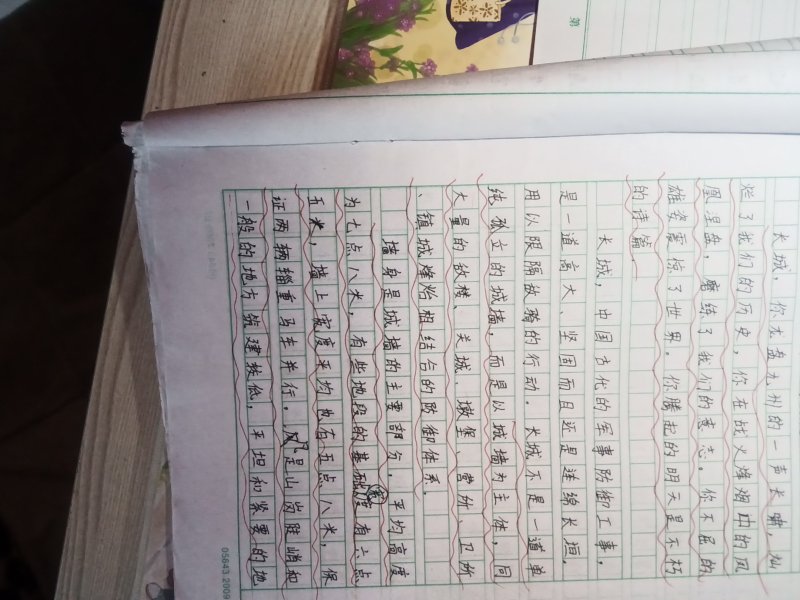 第
长城，你龙盘九州的一声长啸，灿
烂了我们的历史，你在战火烽烟中的凤
凰涅盘，磨练了我们的意志。你不屈的
雄姿震惊了世界。你腾起的明天是不朽
的诗篇。
长城，中国古代的军事防御工事，
是一道高大、坚固而且还是连绵长垣，
用以限隔敌骑的行动。长城不是一道单
纯孤立的城墙，而是以城墙为主体，同
大量的敌楼、关城、墩堡、营所、卫所
、镇城烽炲相结合的防御体系。
墙身是城墙的主要部分，平均高度
为七点八米，有些地段的基础宽度有六点
五米，墙上宽度平均也有五点八米，保
证两辆辎重马车并行。凡是山岗陡峭和
一般的地方筑建较低，平坦和紧要的地
05643.2009